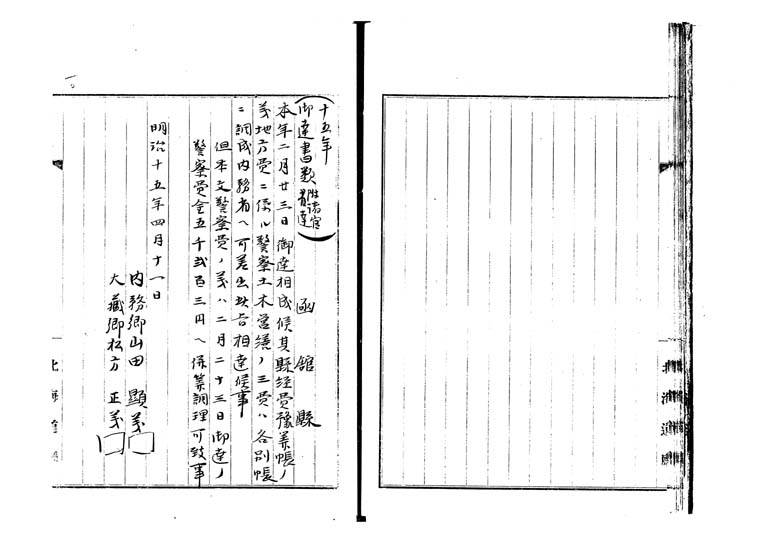 十五年
(御達書類 壯諸官省達)
函館縣
本年二月廿三日御達相成候其縣經費豫算帳ノ
義地方費ニ係ル警察土木營繕ノ三費ハ各別帳
ニ調成内務省ヘ可差出此旨相達候事
但本文警察費ノ義ハ二月二十三日御達ノ
警察費金五千弐百三円ヘ併算調理可致事
明治十五年四月十一日
内務卿山田顯義
大藏卿松方正義